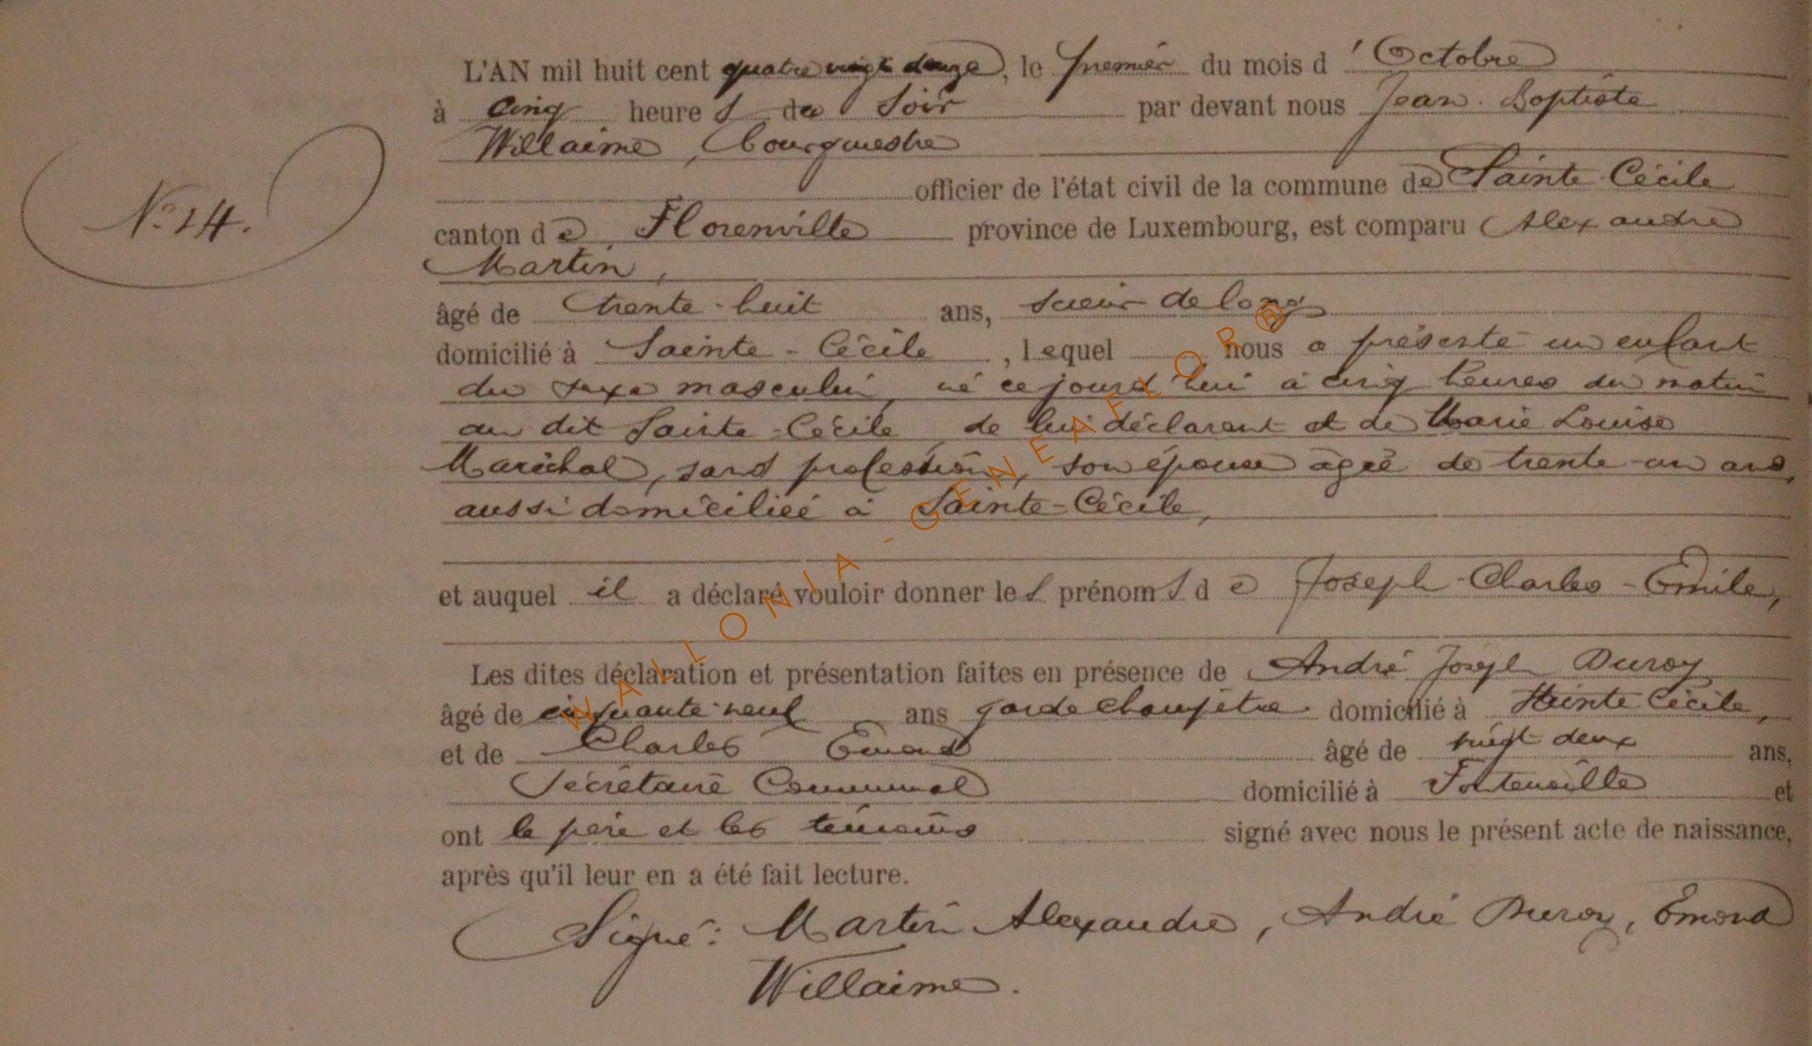 L'AN mil huit cent quatre vingt douze, le premier du mois d'Octobre
à cinq heures du Soir par devant nous Jean Baptiste
Willaime, bourgmestre
officier de l'état civil de la commune de Sainte Cécile
N° 14.
canton de Florenville province de Luxembourg, est comparu Alexandre
Martin,
âgé de trente-huit ans, scieur de long
domicilié à Sainte-Cécile, lequel nous a présenté un enfant
du sexe masculin, né ce jourd'hui à cinq heures du matin
au dit Sainte-Cécile, de lui déclarant et de Marie Louise
Maréchal, sans profession, son épouse âgée de trente-un ans,
aussi domiciliée à Sainte-Cécile,
et auquel il a déclaré vouloir donner les prénoms de Joseph-Charles-Emile,
Les dites déclaration et présentation faites en présence de André Joseph Duroy
âgé de cinquante-neuf ans garde champêtre domicilié à Sainte Cécile,
et de Charles Emond âgé de vingt deux ans,
Secrétaire Communal domicilié à Fontenoille et
ont le père et les témoins signé avec nous le présent acte de naissance,
après qu'il leur en a été fait lecture.
Signé: Martin Alexandre, André Duroy, Emond
Willaime.
WALLONIA-GENEAFLOR®